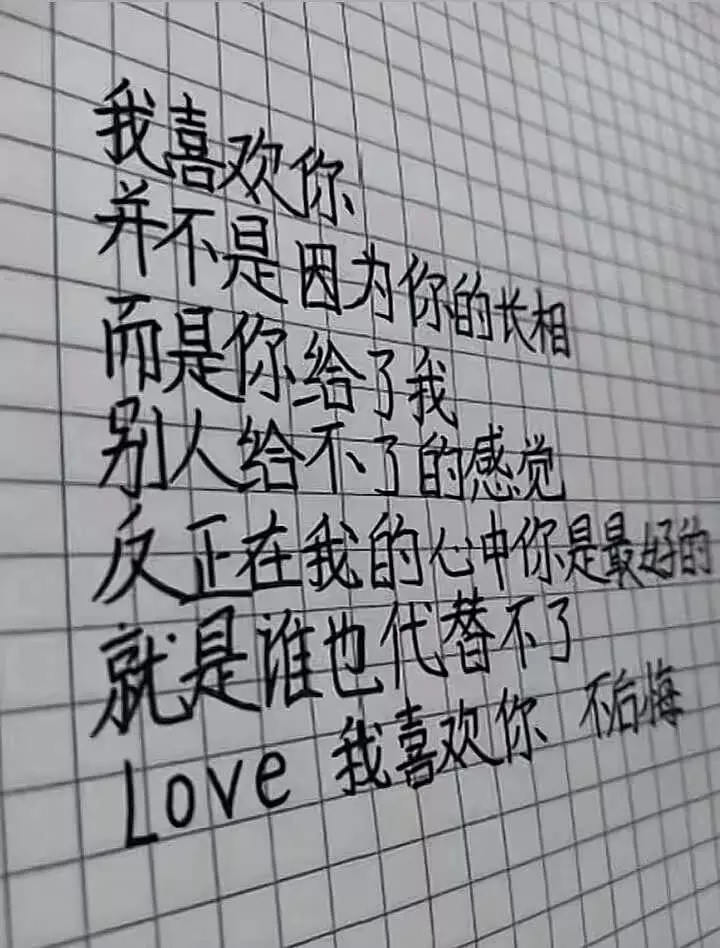 我喜欢你
并不是因为你的长相
而是你给了我
别人给不了的感觉
反正在我的心中你是最好的
就是谁也代替不了
Love 我喜欢你 不后悔